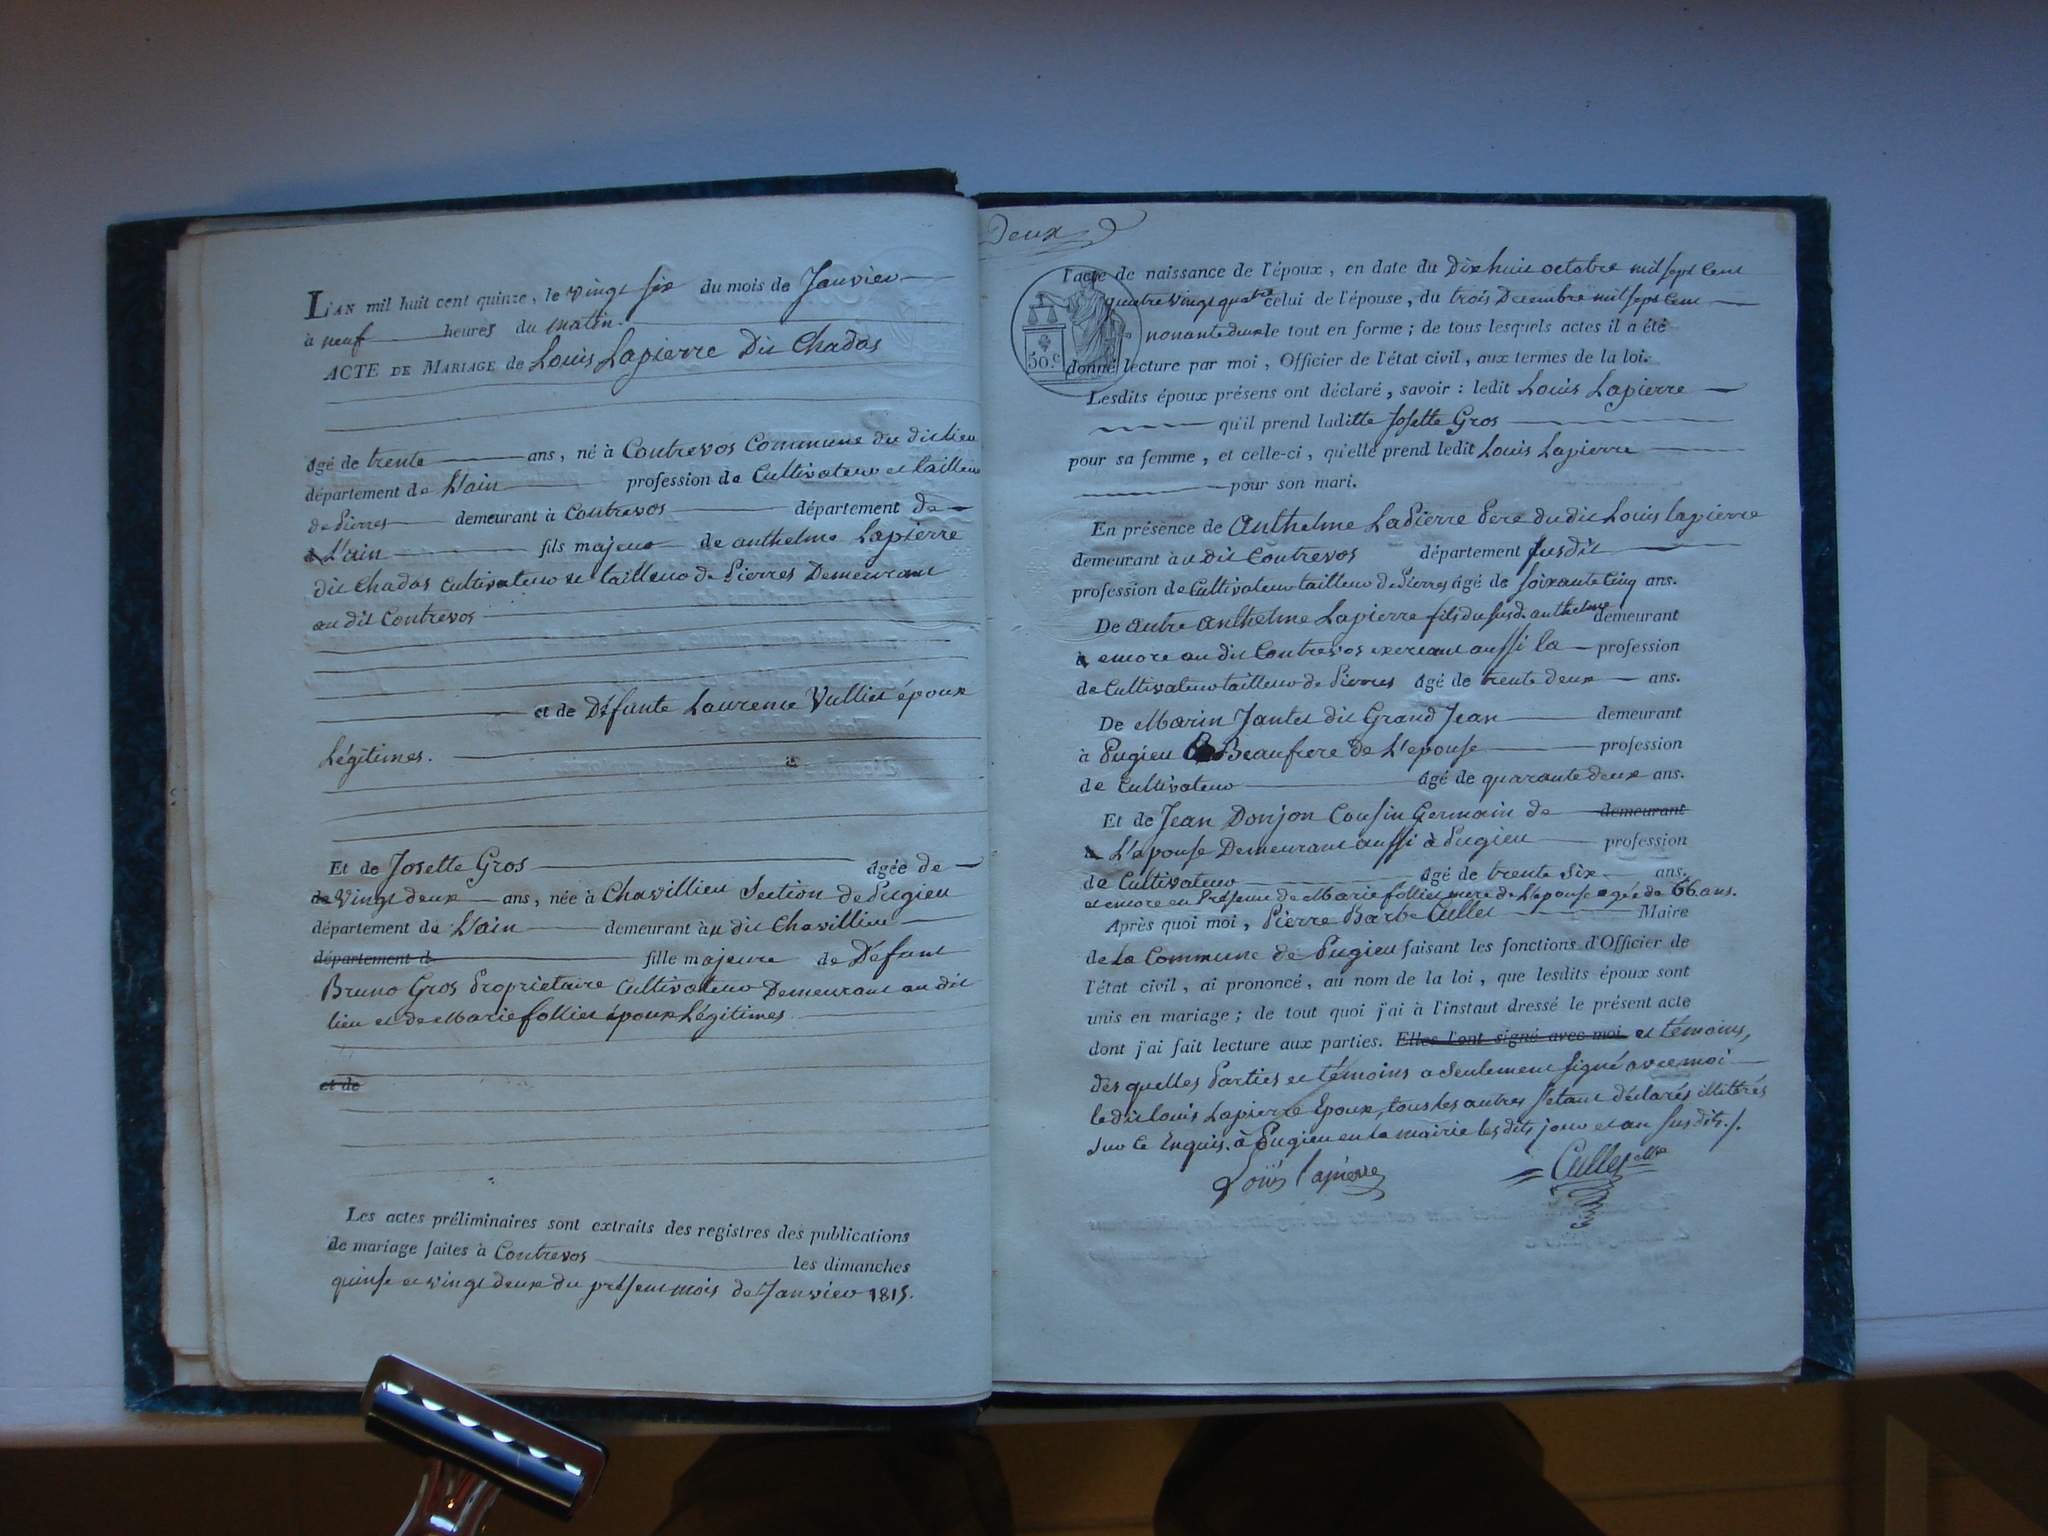 L'AN mil huit cent quinze, le vingt six du mois de Janvier
à neuf heures du matin.
ACTE DE MARIAGE de Louis Lapierre Dit Chadas
Agé de trente ans, né à Contrevos Commune du dit lieu
département de L'ain profession de Cultivateur et tailleur
de Pierres demeurant à Contrevos département de
L'ain fils majeur de anthelme Lapierre
dit Chadas cultivateur et tailleur de Pierres Demeurant
au dit Contrevos
et de Défunte Laurence Vulliet époux
Légitimes.
Et de Josette Gros Agée de
de vingt deux ans, née à Chavillieu Section de Pugieu
département de L'ain demeurant au dit Chavillieu
département d fille majeure de Défunt
Bruno Gros Propriétaire Cultivateur Demeurant au dit
lieu et de Marie folliet époux Légitimes
et de
Les actes préliminaires sont extraits des registres des publications
de mariage faites à Contrevos les dimanches
quinse et vingt deux du présent mois de Janvier 1815.
Deux
50.c
l'acte de naissance de l'époux, en date du Dix huit octobre mil sept Cent
quatre vingt quatre celui de l'épouse, du trois Decembre mil sept Cent
nonante deux le tout en forme; de tous lesquels actes il a été
donné lecture par moi, Officier de l'état civil, aux termes de la loi.
Lesdits époux présens ont déclaré, savoir : ledit Louis Lapierre
qu'il prend laditte Josette Gros
pour sa femme, et celle-ci, qu'elle prend ledit Louis Lapierre
pour son mari.
En présence de Anthelme LaPierre Pere du dit Louis lapierre
demeurant au dit Contrevos département susdit
profession de Cultivateur tailleur de Pierres âgé de soixante Cinq ans.
De autre Anthelme Lapierre fils du susd. anthelme demeurant
à encore au dit Contrevos exercant aussi la profession
de Cultivateur tailleur de Pierres Agé de trente deux ans.
De Marin Jantet dit Grand Jean demeurant
à Pugieu Beaufrere de L'epouse profession
de Cultivateur Agé de quarante deux ans.
Et de Jean Donjon Cousin Germain de demeurant
à L'epouse Demeurant aussi à Pugieu profession
de Cultivateur Agé de trente six ans.
et encore en Présence de Marie follier mere de L'epouse agée de 66 ans.
Après quoi moi, Pierre Barbe Cullet Maire
de La Commune de Pugieu faisant les fonctions d'Officier de
l'état civil, ai prononcé, au nom de la loi, que lesdits époux sont
unis en mariage; de tout quoi j'ai à l'instant dressé le présent acte
dont j'ai fait lecture aux parties. Elles l'ont signé avec moi et témoins,
des quelles Parties et témoins a seulement signé avec moi
le dit louis Lapierre Epoux, tous les autres s'etant déclarés illittrés
sur Ce Enquis. à Pugieu en la mairie les dits jour et an susdits./.
Loüis lapierre Cullet Mre